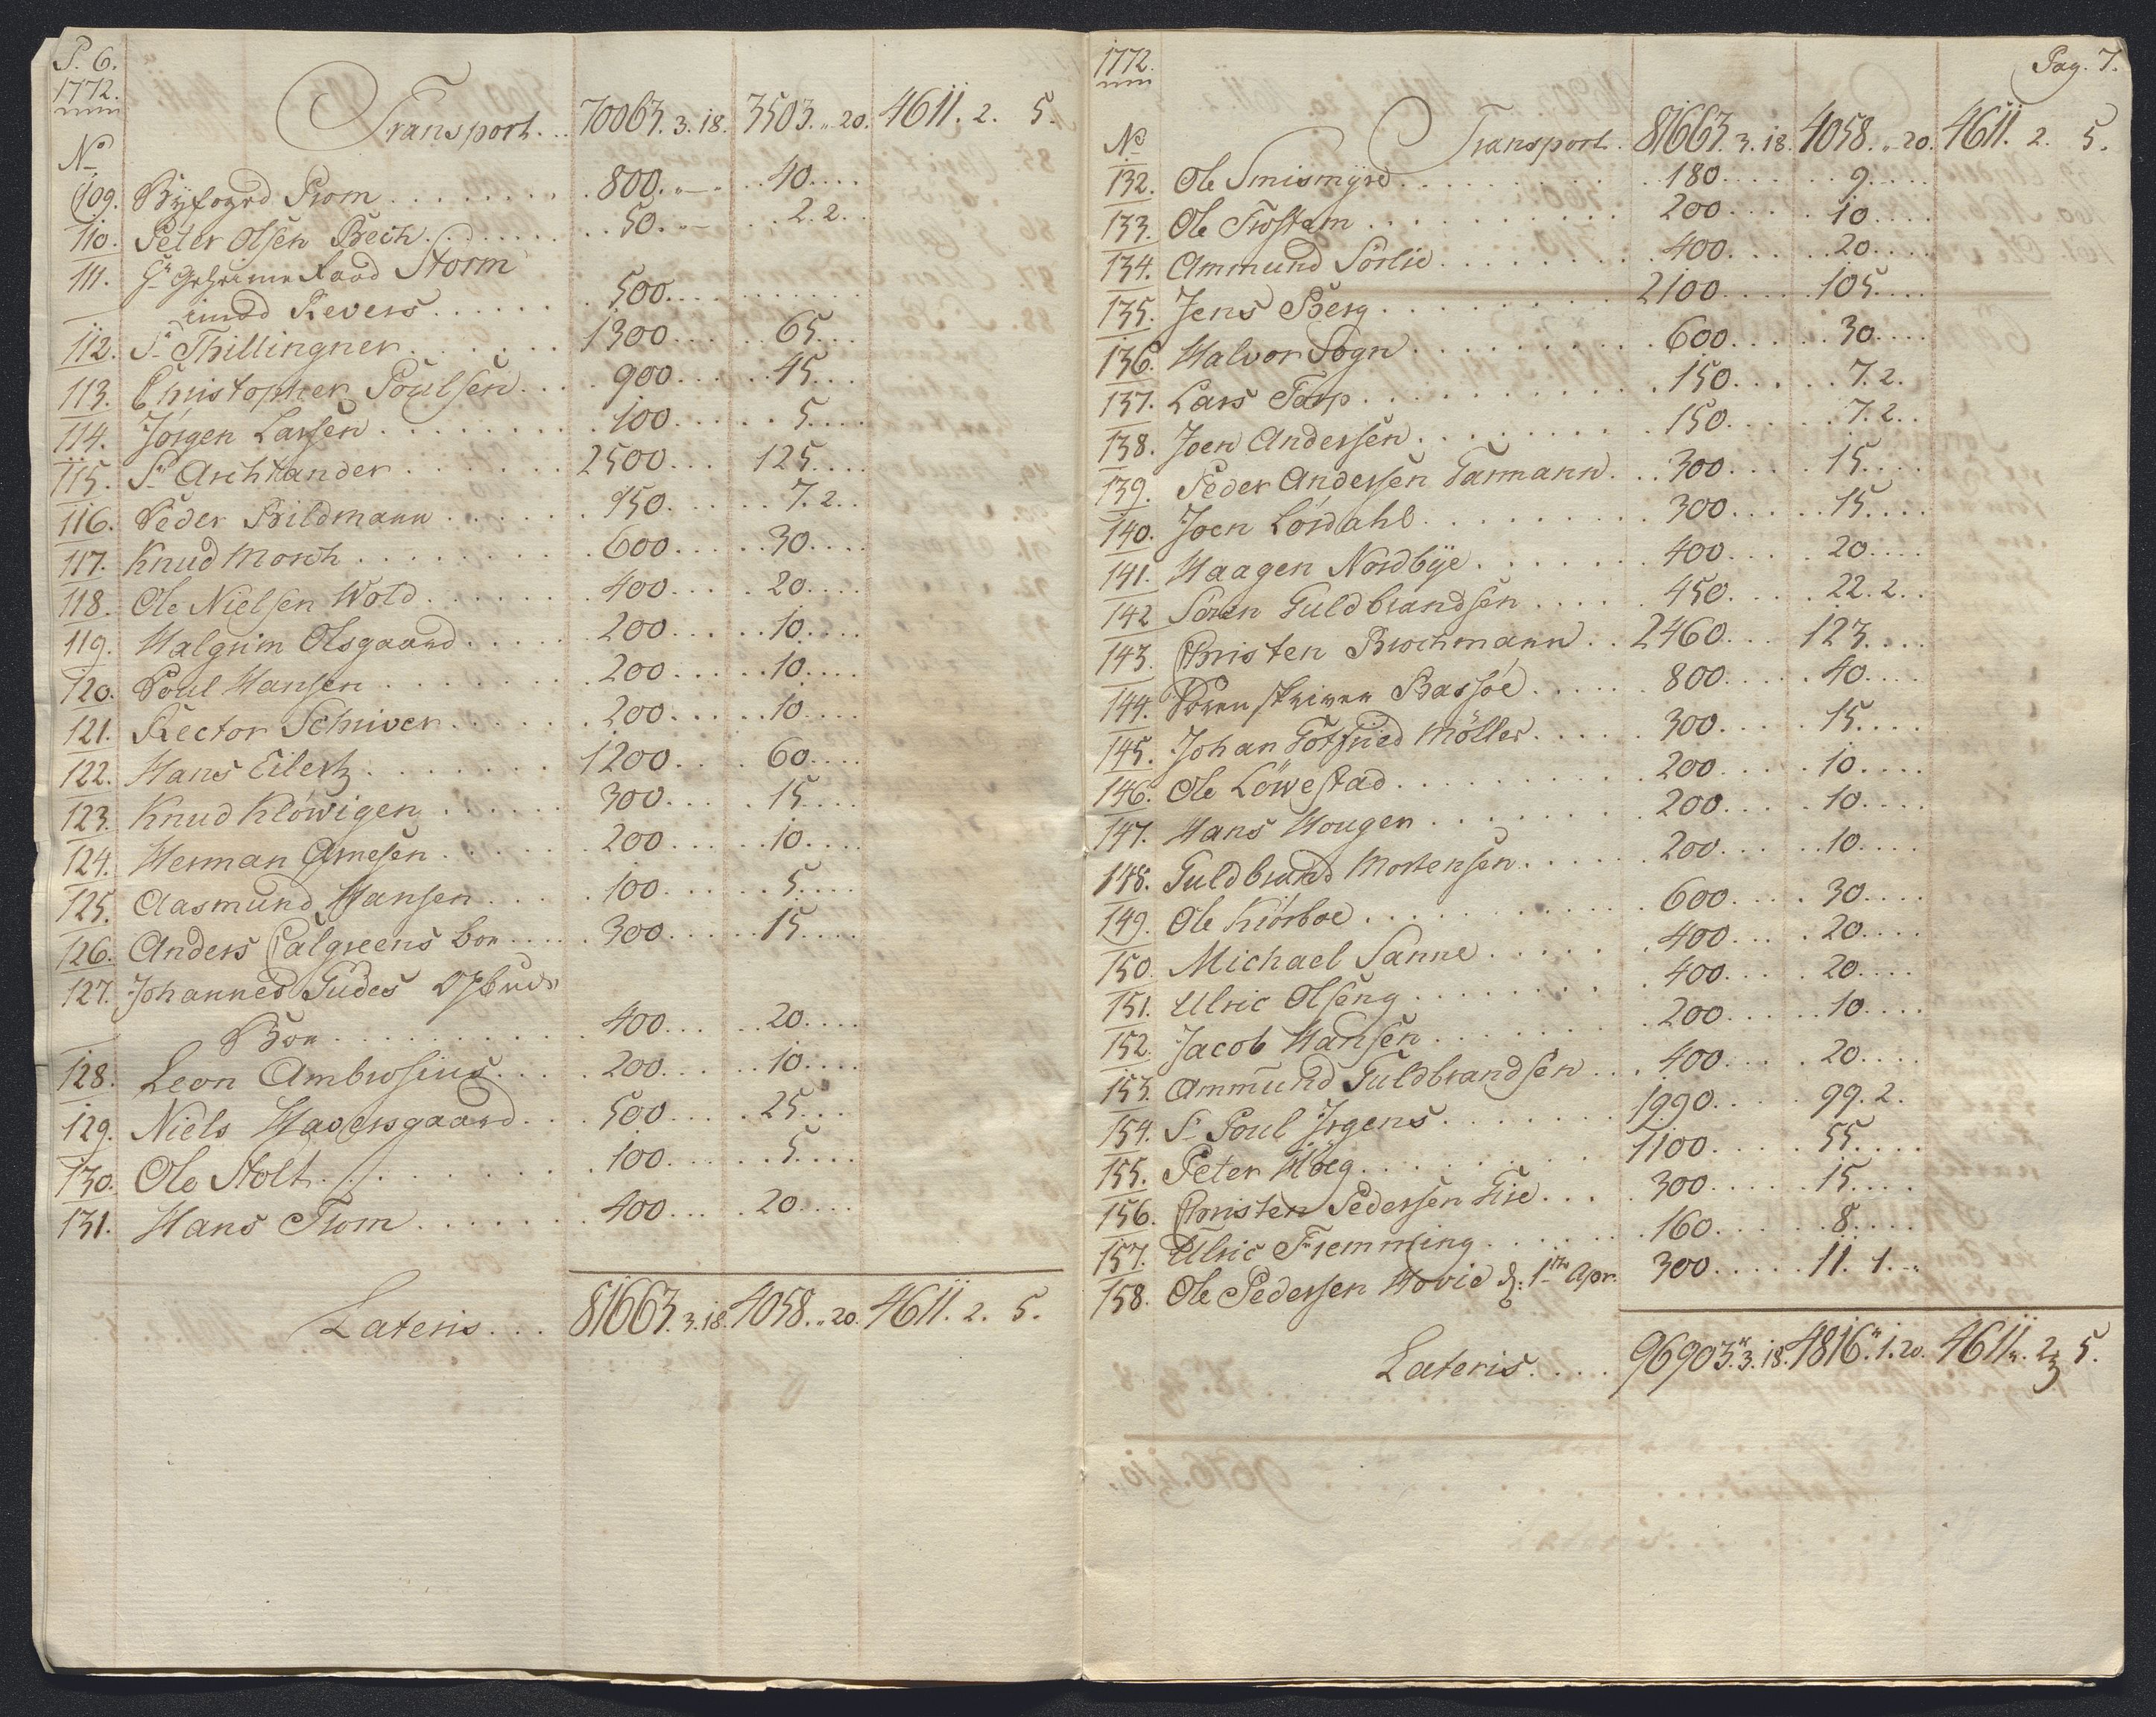 P. 6.
1772.
Transport... 70063. 3. 18. 3503. „ 20. 4611. 2. 5.
No
109. Byfogd Prom........ 800. „ — . 40....
110. Peter Olsen Bech....... 50. „ — . 2. 2..
111. Hr Geheime Raad Storm
imod Revers...... 500..........
112. Sr Thillingner...... 1300..... 65...
113. Christopher Poulsen.... 900..... 45...
114. Jörgen Larsen........ 100..... 5....
115. Sr Archtander...... 2500... 125....
116. Peder Bildmann...... 150..... 7. 2..
117. Knud Morch........ 600..... 30....
118. Ole Nielsen Wold...... 400.... 20....
119. Halgrim Olsgaard..... 200..... 10....
120. Poul Hansen........ 200..... 10....
121. Rector Schiver...... 200..... 10....
122. Hans Eilertz....... 1200.... 60....
123. Knud Klöwigen...... 300.... 15....
124. Herman Arnesen...... 200..... 10....
125. Aasmund Hansen..... 100..... 5....
126. Anders Calgreens boe..... 300..... 15....
127. Johannes Gudes Opbuds
Boe.......... 400.... 20....
128. Leon Ambrosius..... 200..... 10....
129. Niels Haversgaard... 500.... 25...
130. Ole Stolt......... 100..... 5....
131. Hans From....... 400.... 20....
Lateris... 81663. 3. 18. 4058. „ 20. 4611. 2. 5.
Pag. 7.
1772.
No
Transport. 81663. 3. 18. 4058. „ 20. 4611. 2. 5.
132. Ole Smismyre......... 180..... 9....
133. Ole Trostem.......... 200.... 10....
134. Ammund Sörlie........ 400..... 20....
135. Jens Berg........ 2100..... 105....
136. Halvor Sogn......... 600..... 30....
137. Lars Tarp........... 150..... 7. 2.
138. Joen Andersen........ 150..... 7. 2..
139. Peder Andersen Tarmann... 300.... 15....
140. Joen Lördahl......... 300..... 15....
141. Haagen Nordbye....... 400.... 20....
142 Sören Guldbrandsen..... 450.... 22. 2..
143. Christen Brochmann.. 2460... 123....
144. Sorenskriver Bassöe...... 800..... 40....
145. Johan Gotfried Möller..... 300.... 15....
146. Ole Löwestad......... 200..... 10....
147. Hans Hougen........ 200.... 10....
148. Guldbrand Mortensen...... 200..... 10....
149. Ole Kiörboe........... 600.... 30....
150. Michael Sanne...... 400.... 20....
151. Ulric Olseng........ 400.... 20....
152. Jacob Hansen....... 200..... 10....
153. Ammund Guldbrandsen... 400.... 20....
154. Sr Poul Jrgens....... 1990.... 99. 2.
155. Peter Höeg......... 1100..... 55....
156. Christen Pedersen Gise.... 300..... 15....
157. Ulric Fremming....... 160..... 8....
158. Ole Pedersen Hovie d: 1ste Apr. 300..... 11. 1. „
Lateris.... 96903. 3. 18. 4816. 1. 20. 4611. 2. 5.